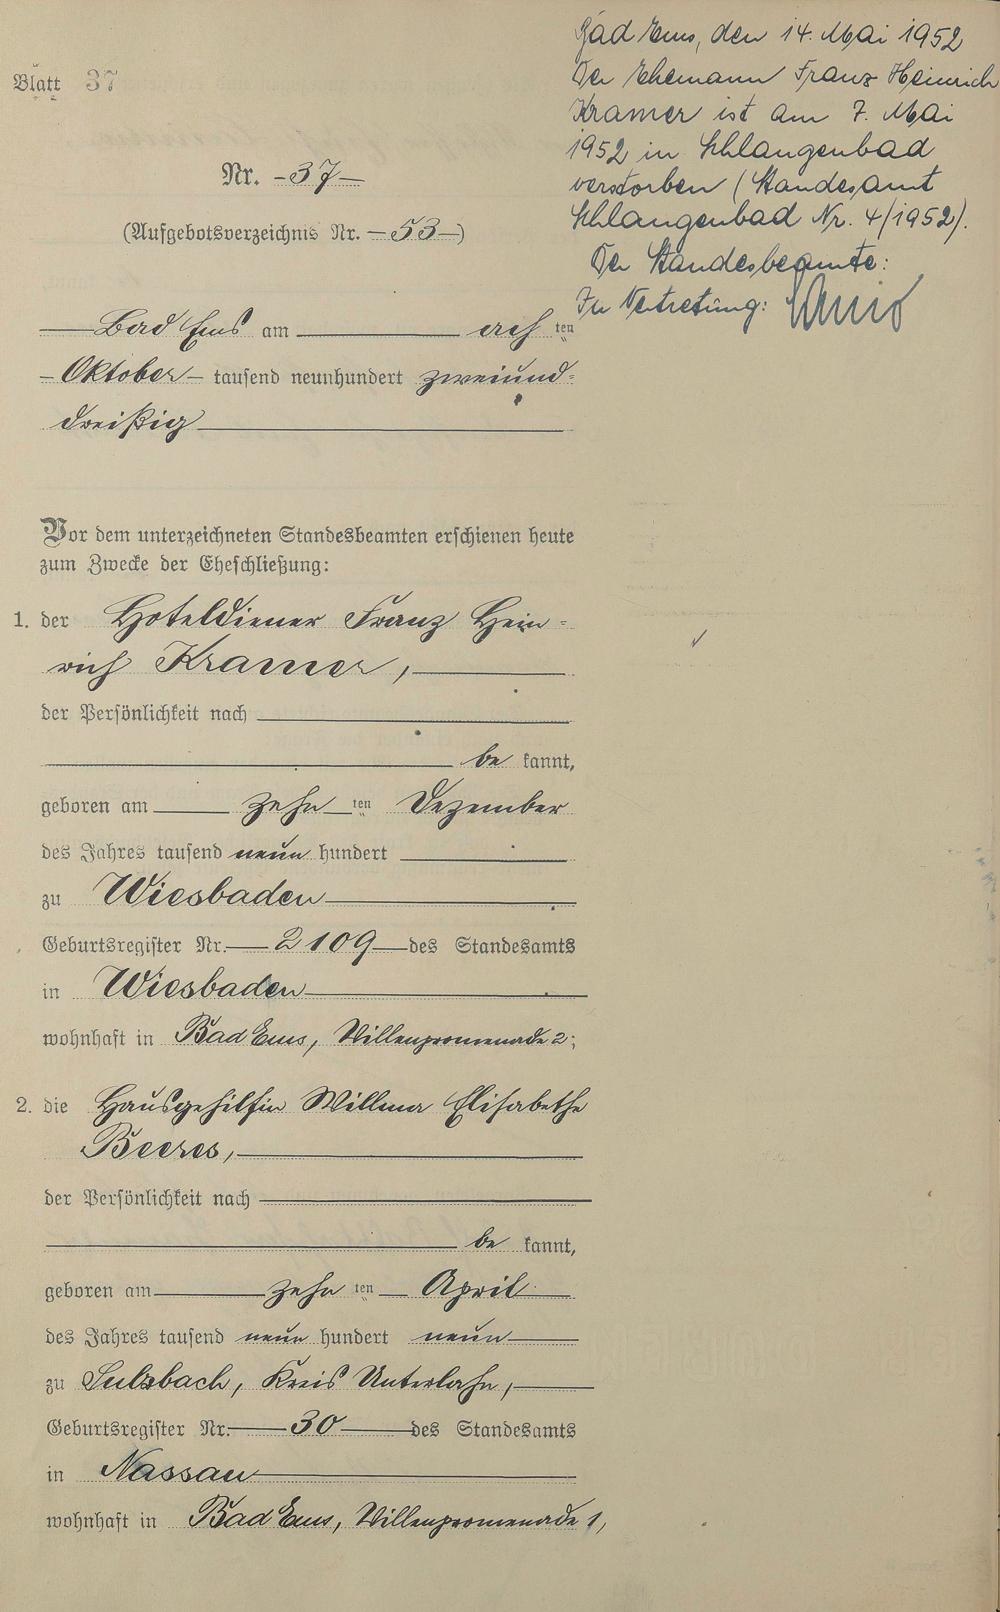 Blatt 37
Bad Ems, den 14. Mai 1952
Der Ehemann Franz Heinrich
Kramer ist am 7. Mai
1952 in Schlangenbad
verstorben (Standesamt
Schlangenbad Nr. 4/1952).
Der Standesbeamte:
In Vertretung:
Nr. -37-
(Aufgebotsverzeichnis Nr. -53-)
Bad Ems am acht ten
- Oktober - tausend neunhundert zweiund-
dreißig
Vor dem unterzeichneten Standesbeamten erschienen heute
zum Zwecke der Eheschließung:
1. der Hoteldiener Franz Hein-
rich Kramer,
der Persönlichkeit nach
be kannt,
geboren am zehn ten Dezember
des Jahres tausend neun hundert
zu Wiesbaden
Geburtsregister Nr. 2109 des Standesamts
in Wiesbaden
wohnhaft in Bad Ems, Villenpromenade 2;
2. die Hausgehilfin Willma Elisabethe
Beeres,
der Persönlichkeit nach
be kannt,
geboren am zehn ten April
des Jahres tausend neun hundert neun
zu Sulzbach, Kreis Unterlahn,
Geburtsregister Nr. 30 des Standesamts
in Nassau
wohnhaft in Bad Ems, Villenpromenade 1,